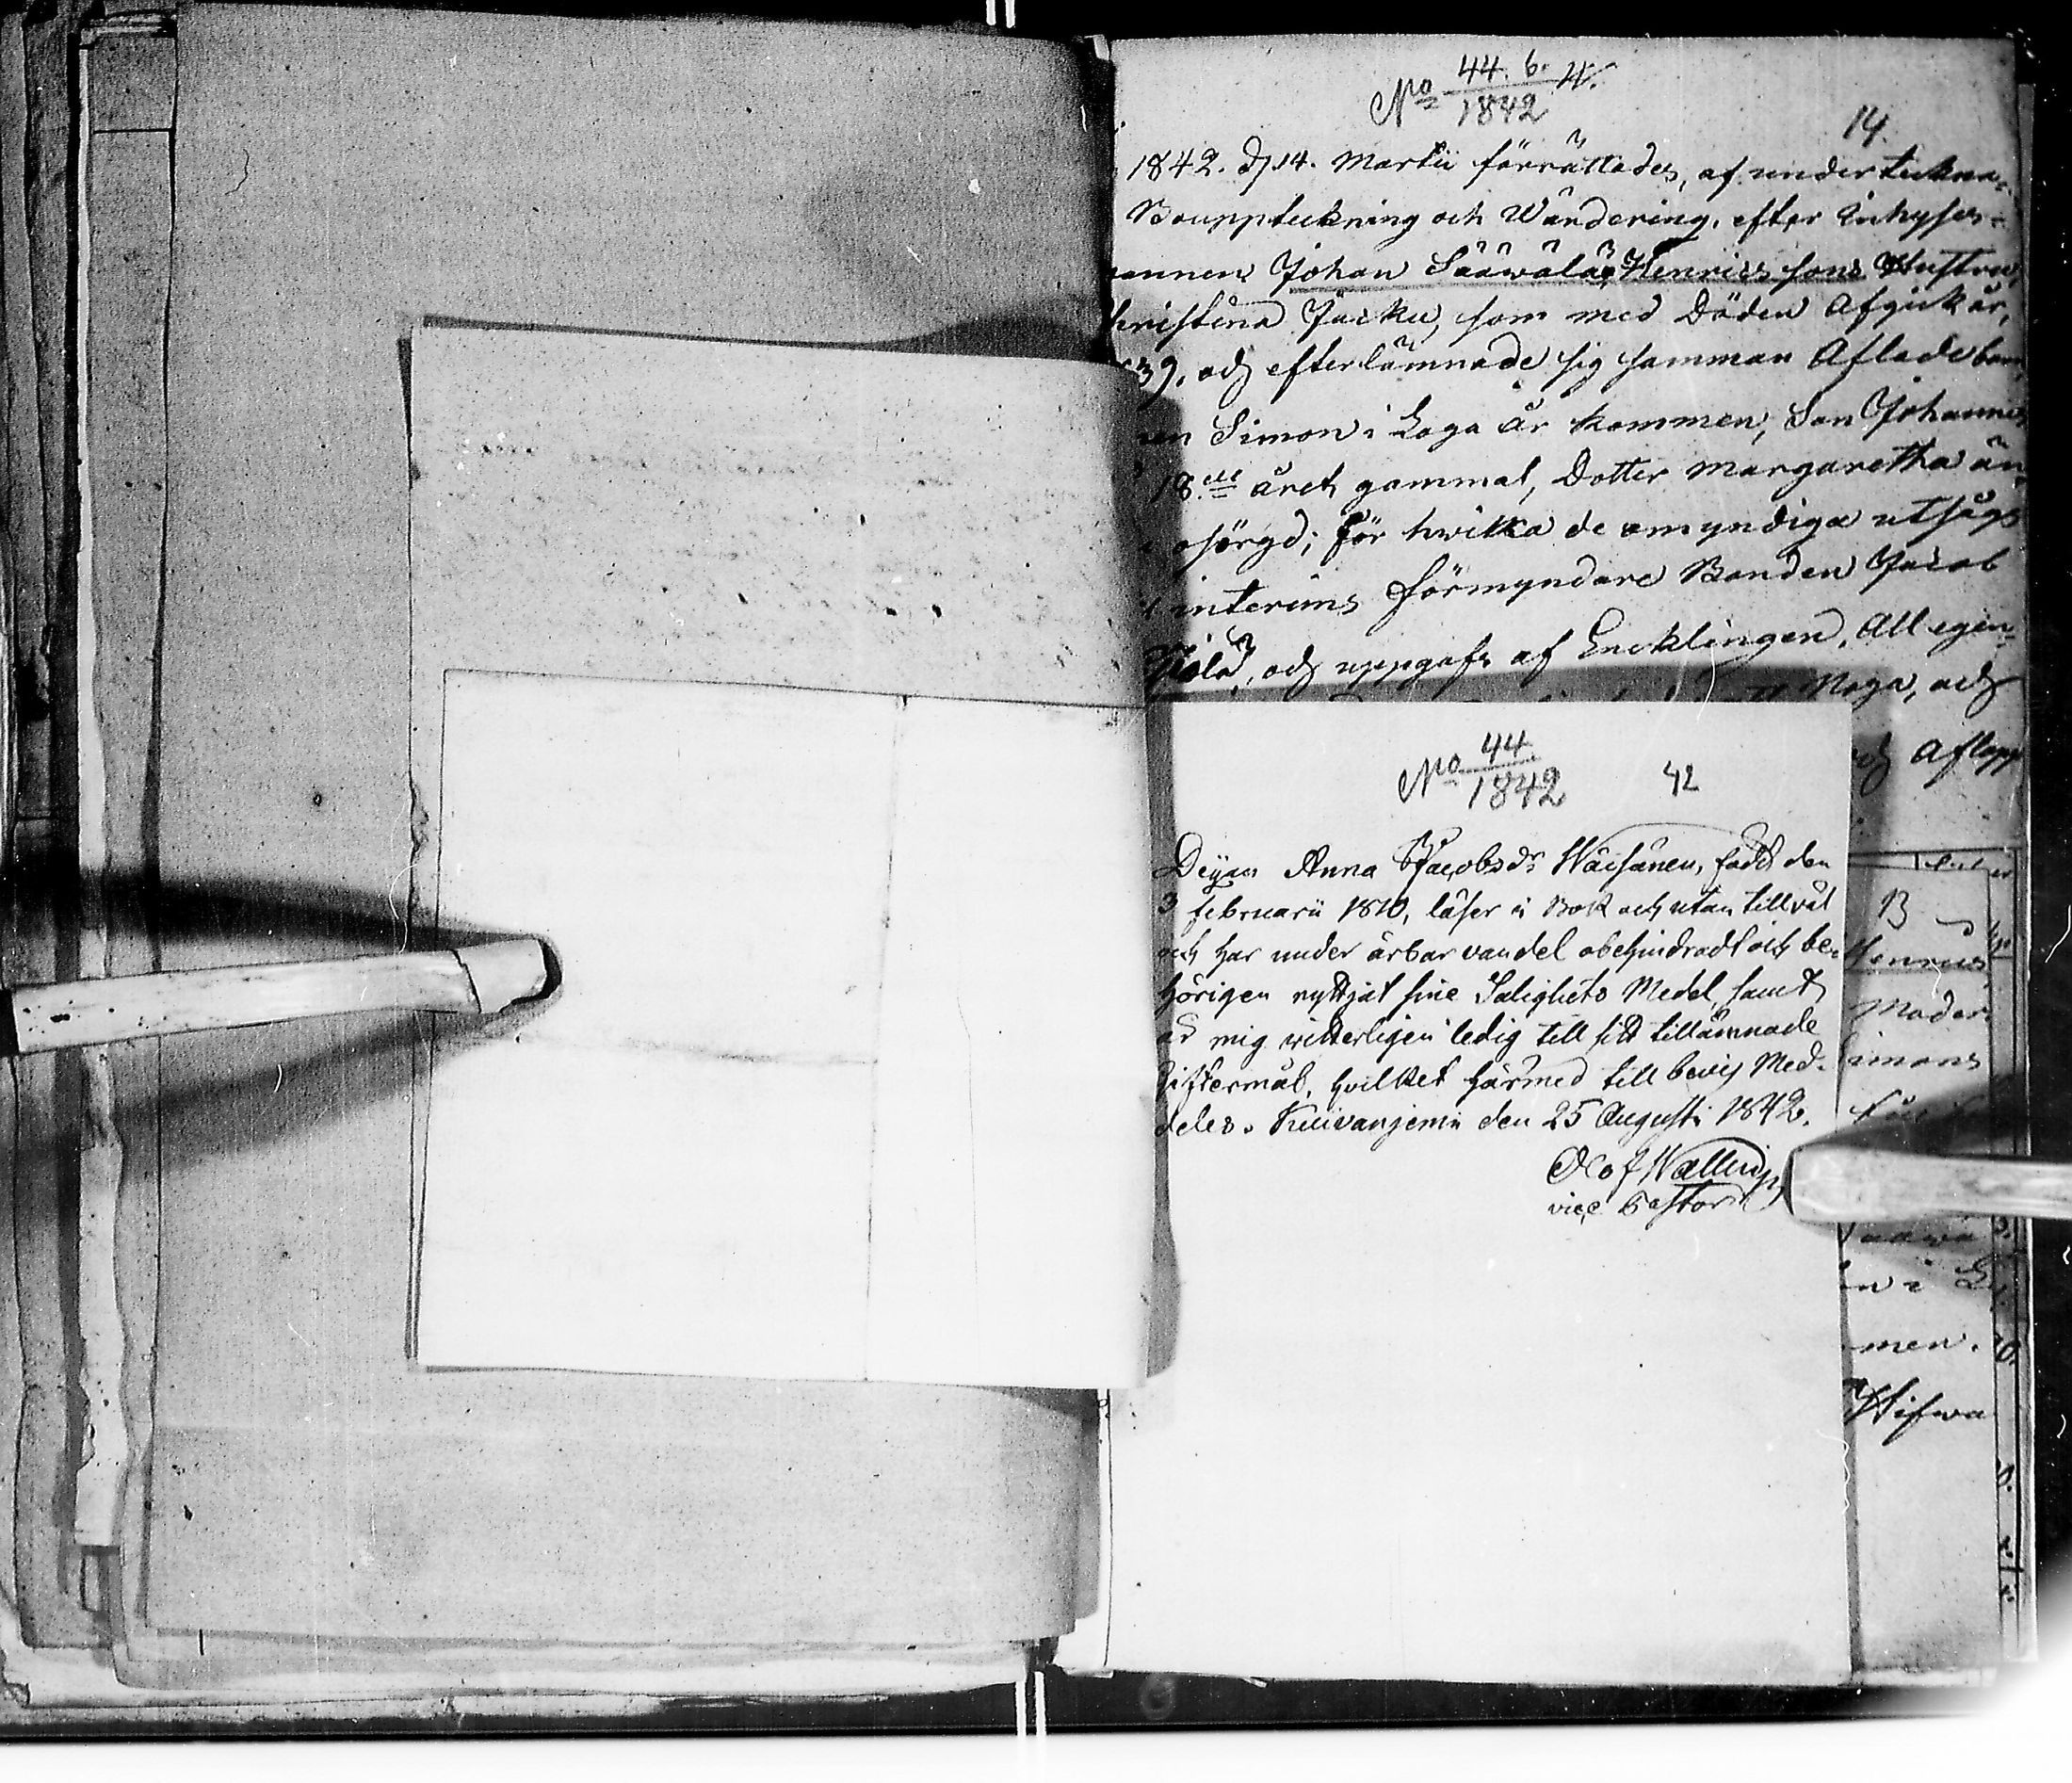 No 44. b. 
1842
14.
1842. d. 14. Martii förrättades, af underteckna=
Bouppteckning och Wärdering, efter Inhyses=
Johan Sääwälä, Henrics sons Hustru,
som med Döden Afgick år,
39, och efterlämnade sig samman Aflade barn,
Simon i Loga är kommen, Son Johannes
18de året gammal, Dotter Margaretha än
osörgd; för hwilka de omyndiga utsågs
interims förmyndare Bonden Jacob
och uppgafs af Encklingen, All egen=
Noga, och
och Aflagt
No 44
1842
42
Deyan Anna Jacobsdr Wäisänen, född den
3 februarii 1810, läser i Bok och utan till väl
och har under ärbar vandel obehindradt och be=
hörigen nyttjat sine Salighets Medel, samt
är mig vitterligen ledig till sitt tillämnade
Giftermål, hvilket härmed till bevis Med=
deles. Kuivanjemi den 25 Augusti 1842.
Olof Wallin
vice Pastor
B
Henrics
Moder
Simons
men.